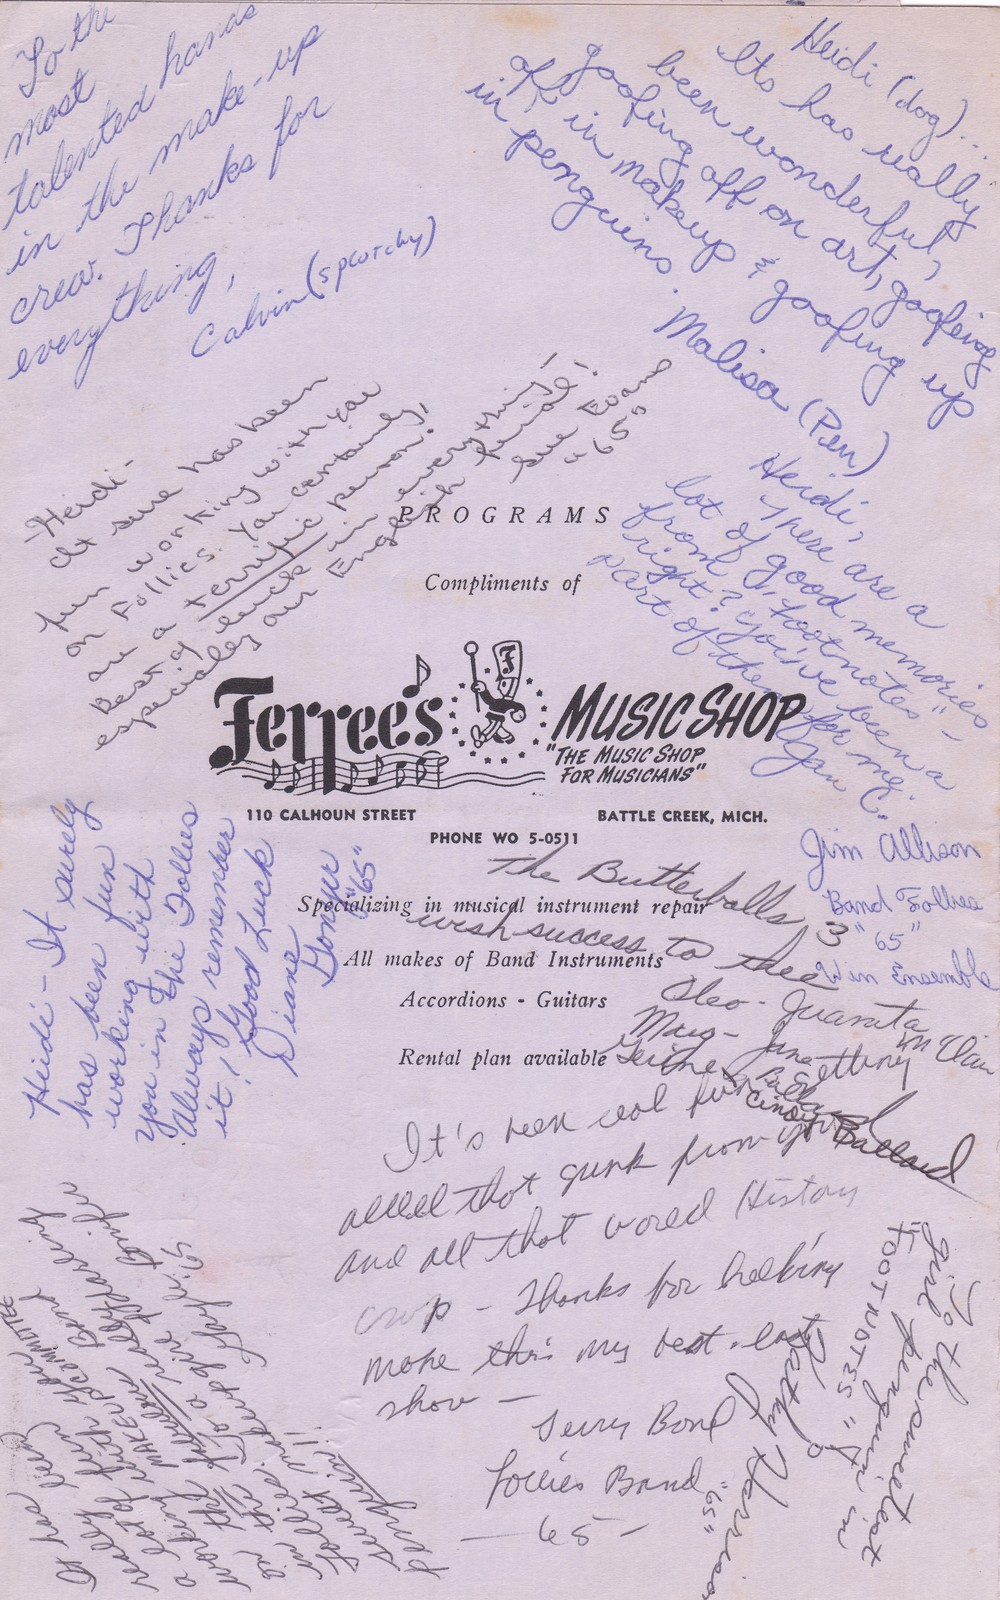 To the
most
talented hands
in the make-up
crew. Thanks for
everything,
Calvin (splotchy)
Heidi (dog)...
Its has really
been wonderful,
goofing off on art, goofing
off in makeup & goofing up
in penguins.
Malisa (Pen)
Heidi -
It sure has been
fun working with you
on Follies. You certainly
are a terrific person.
Best of luck in everything!
especially our English finale!
Sue Evans
"65"
Heidi,
There are a
lot of good memories
from "Footnotes" -
right? You've been a
part of them for me.
Jan C.
PROGRAMS
Compliments of
F
Ferree's MUSIC SHOP
"THE MUSIC SHOP
FOR MUSICIANS"
110 CALHOUN STREET BATTLE CREEK, MICH.
PHONE WO 5-0511
Specializing in musical instrument repair
All makes of Band Instruments
Accordions - Guitars
Rental plan available
Jim Allison
Band Follies
"65"
Win Ensemble
The Butterballs 3
wish success to thee
Cleo - Juanita
Marg - Jane
Cindy Ballard
Heidi - It surely
has been fun
working with
you in The Follies
Always remember
it! Good Luck
Diane
"65"
It's been real fun
all that gunk from you
and all that World History
crap - Thanks for helping
make this my best - last
show -
Terry Bond
Follies Band
- 65 -
To the sweetest
girl penguin in
"FOOTNOTES"
Kathy Harrison
"65"
It has been
really fun
a lot with your
work MAKEUP COMMITTEE
in this fabulous Band
Follies. To a real darling
sweet makeup girl
penguin!!
'65